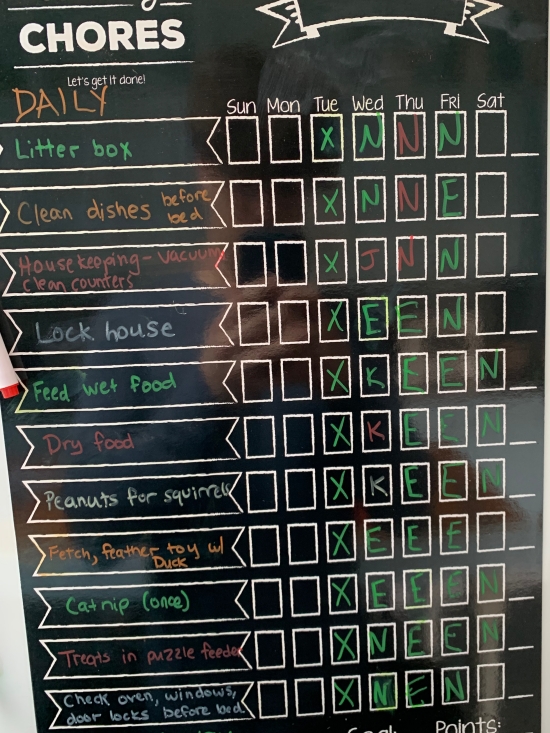 CHORES
Let's get it done!
DAILY
Sun Mon Tue Wed Thu Fri Sat
Litter box X N N N
Clean dishes before bed X N N E
Housekeeping - vacuum X J N N
clean counters
Lock house X E E N
Feed wet food X K E E N
Dry food X K E E N
Peanuts for squirrels X K E E N
Fetch, feather toy w/ X E E E
Duck
Catnip (once) X E E E N
Treats in puzzle feeder X N E E N
Check oven, windows, X N E N
door locks before bed
Goal: Points: